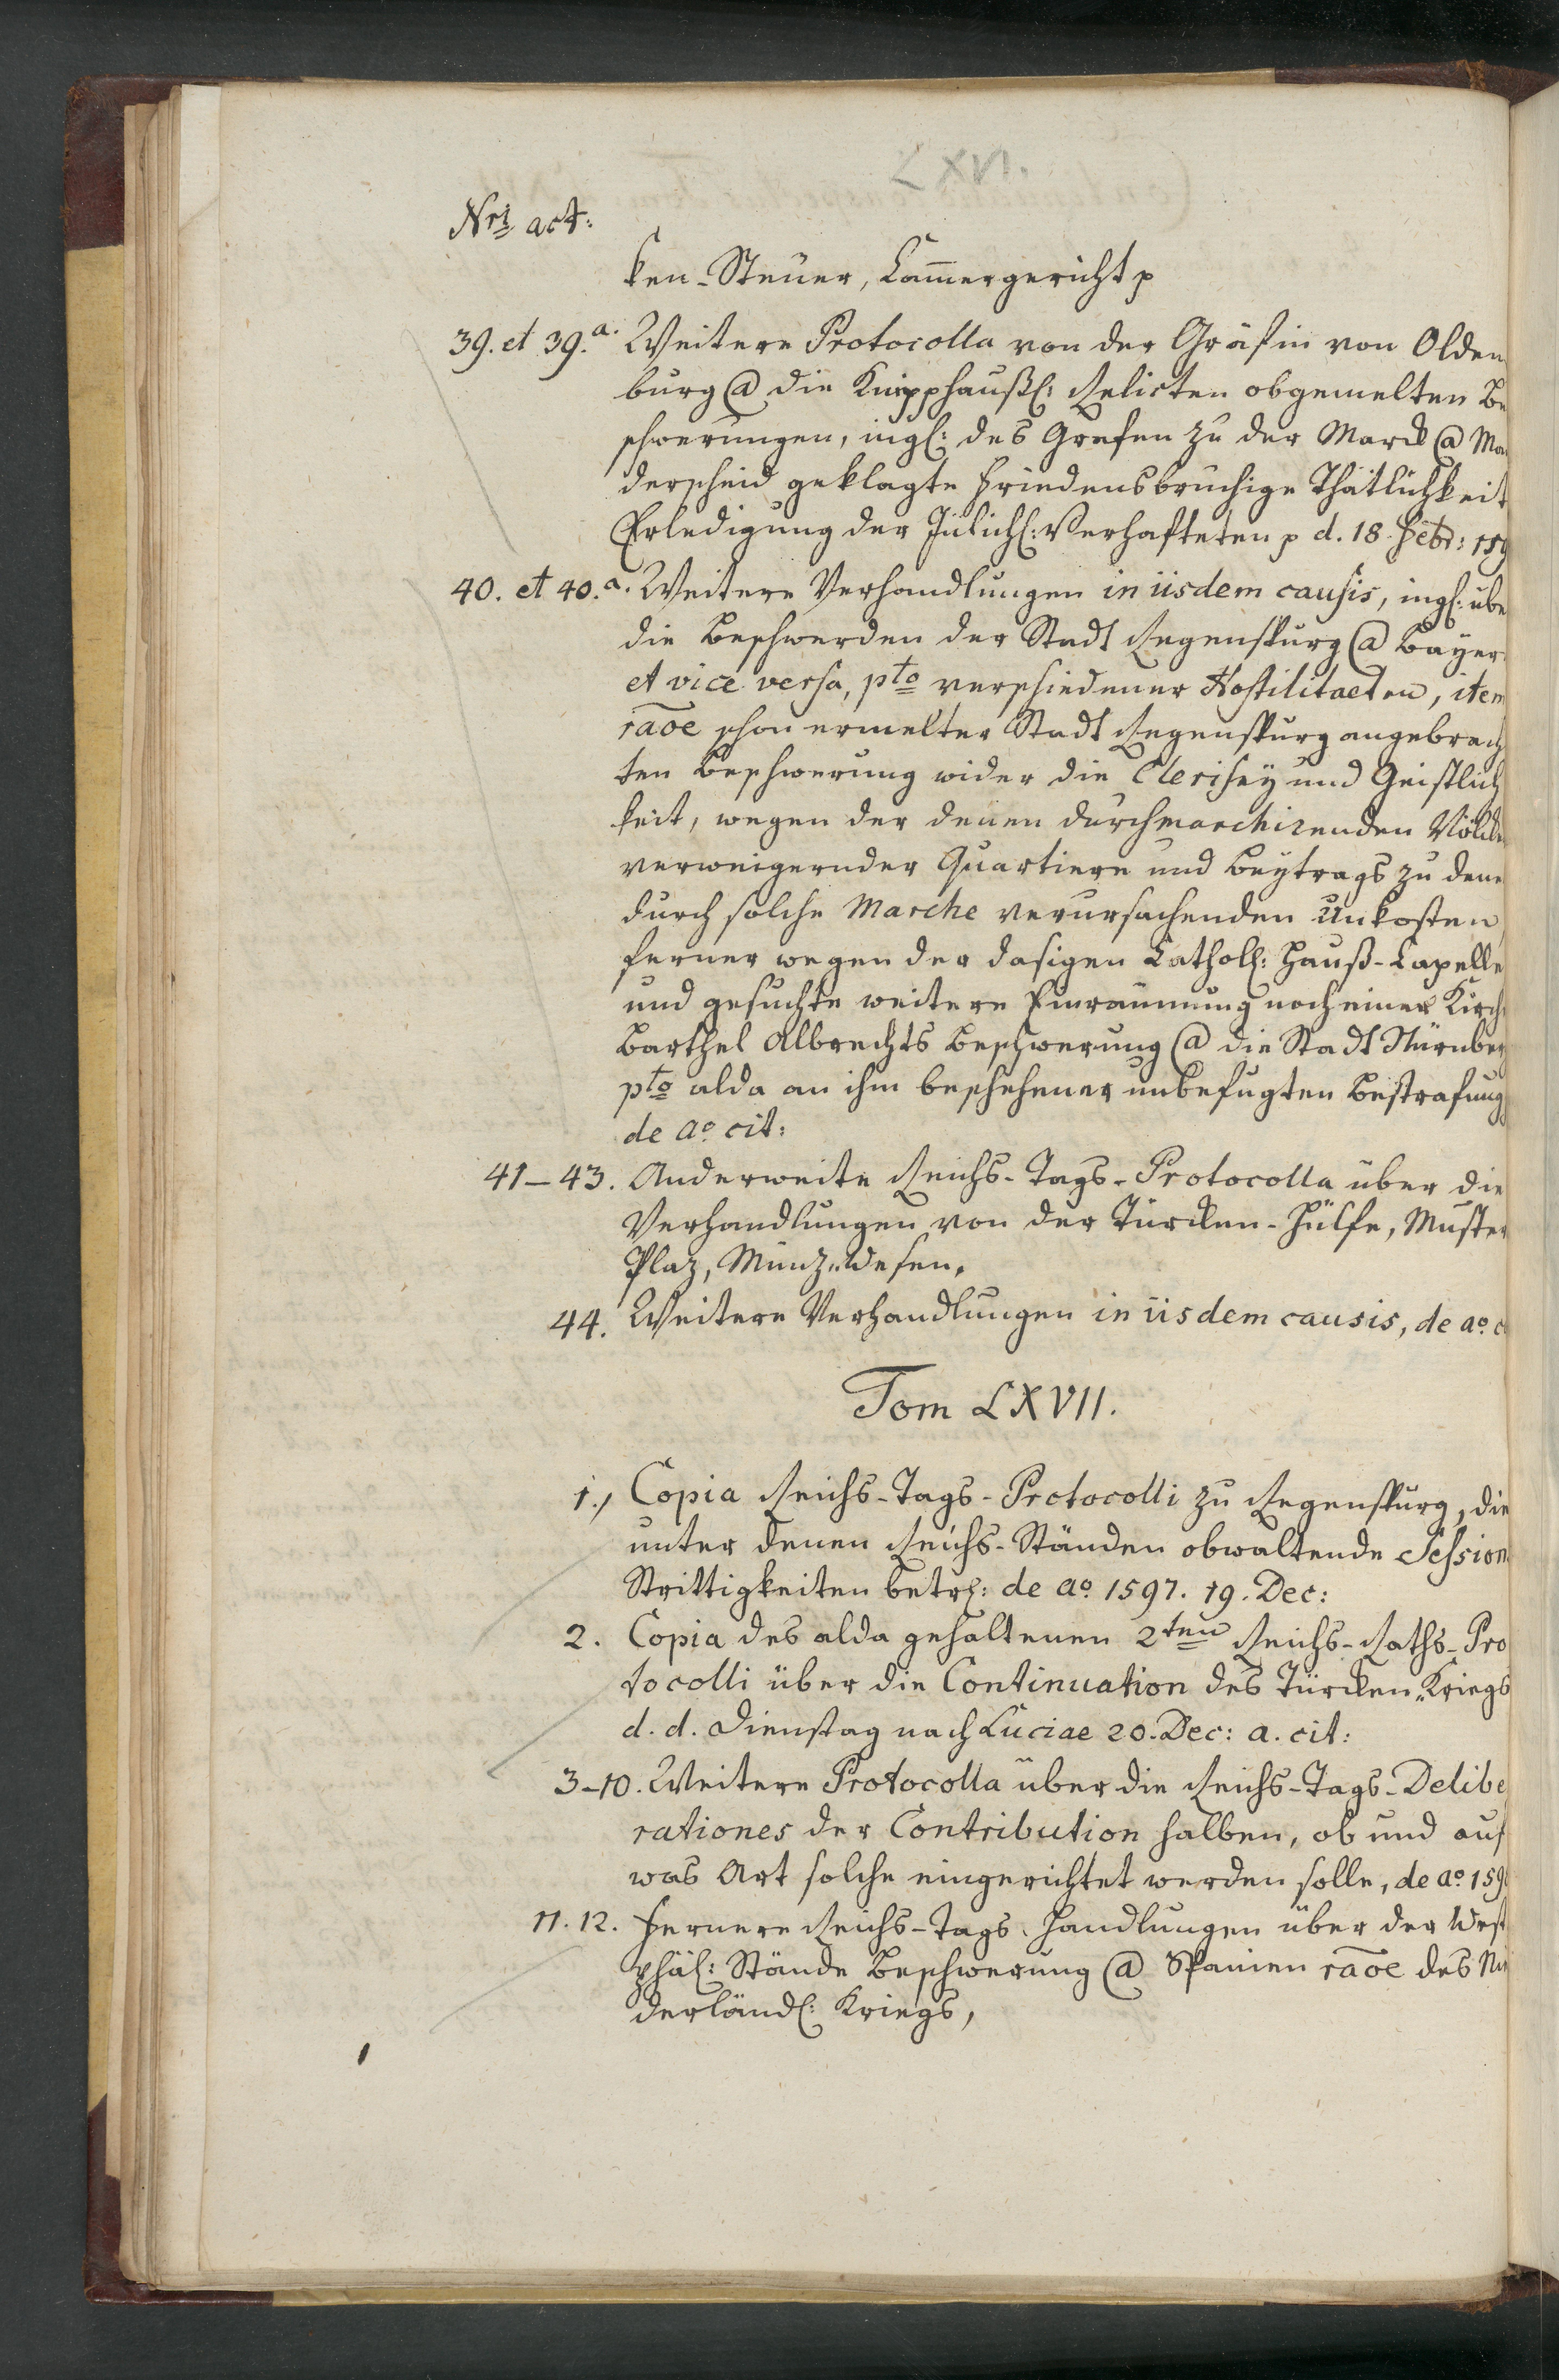 LXVI.
Nri act:
ken-Steuer, Cammergericht p
39. et 39.a. Weitere Protocolla von der Gräfin von Olden
burg @ die Knipphaußl: Relicten obgemelten Be
schwerungen, ingl: des Grafen zu der Marck @ Man
derscheid geklagte Friedensbruchige Thätlichkeit
Erledigung der Jülichl: Verhafteten p d. 18. Febr: 159
40. et 40.a. Weitere Verhandlungen in iisdem causis, ingl: ube
die Beschwerden der Stadt Regenspurg @ Bayer
et vice versa, pto verschiedener Hostilitaeten, item
raoe schon ermelter Stadt Regenspurg angebrach
ten Beschwerung wider die Clerisey und Geistlich
keit, wegen der denen durchmarchirenden Völcke
verweigernder Quartiere und Beytrags zu dene
durch solche Marche verursachenden Unkosten,
ferner wegen der dasigen Cathol: Hauß-Capelle
und gesuchte weitere Einräumung noch einer Kirche
Barthel Albrechts Beschwerung @ die Stadt Nürnberg
pto alda an ihm beschehener unbefugten Bestrafung
de ao cit:
41-43. Anderweite Reichs-Tags-Protocolla über die
Verhandlungen von der Türcken-Hülfe, Muster
Plaz, Münz-Wesen.
44. Weitere Verhandlungen in iisdem causis, de ao c
Tom LXVII.
1., Copia Reichs-Tags-Protocolli zu Regenspurg, die
unter denen Reichs-Ständen obwaltende Session
Strittigkeiten betrl: de ao 1597. 19. Dec:
2. Copia des alda gehaltenen 2ten Reichs-Raths-Pro
tocolli über die Continuation des Türcken-Kriegs
d. d. Dienstag nach Luciae 20. Dec: a. cit:
3-10. Weitere Protocolla über die Reichs-Tags-Delibe
rationes der Contribution halben, ob und auf
was Art solche eingerichtet werden solle, de ao 159
11. 12. Fernere Reichs-Tags-Handlungen über der West
phäl: Stände Beschwerung @ Spanien raoe des Nie
derländl: Kriegs,